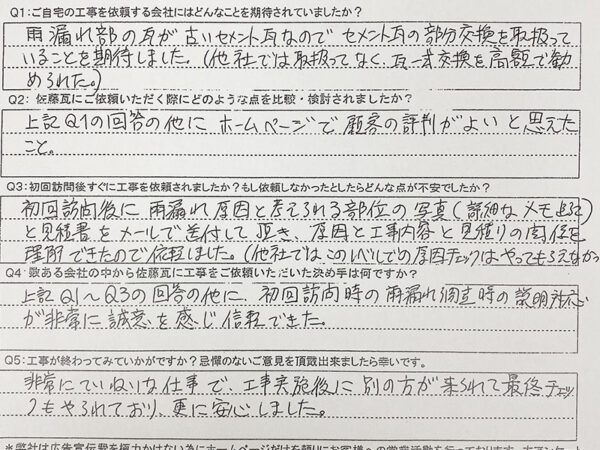 Q1:ご自宅の工事を依頼する会社にはどんなことを期待されていましたか？
雨漏れ部の瓦が古いセメント瓦なのでセメント瓦の部分交換を取扱って
いることを期待しました。(他社では取扱ってなく、瓦一式交換を高額で勧
められた。)
Q2: 佐藤瓦にご依頼いただく際にどのような点を比較・検討されましたか？
上記Q1の回答の他に ホームページで顧客の評判がよいと思えた
こと。
Q3:初回訪問後すぐに工事を依頼されましたか？もし依頼しなかったとしたらどんな点が不安でしたか？
初回訪問後に雨漏れ原因と考えられる部位の写真(詳細なメモ
と見積書をメールで送付して頂き、原因と工事内容と見積りの関係を
理解できたので依頼しました。(他社ではこのレベルでの原因チェックはやってもらえなかっ
Q4: 数ある会社の中から佐藤瓦に工事をご依頼いただいた決め手は何ですか？
上記Q1〜Q3の回答の他に、初回訪問時の雨漏れ調査時の説明対応
が非常に誠意を感じ信頼できた。
Q5:工事が終わってみていかがですか？忌憚のないご意見を頂戴出来ましたら幸いです。
非常にていねいな仕事で、工事実施後に別の方が来られて最終チェッ
クもやられており、更に安心しました。
*弊社は広告宣伝費を極力かけない為にホームページだけを頼りにお客様への営業活動を行っております。